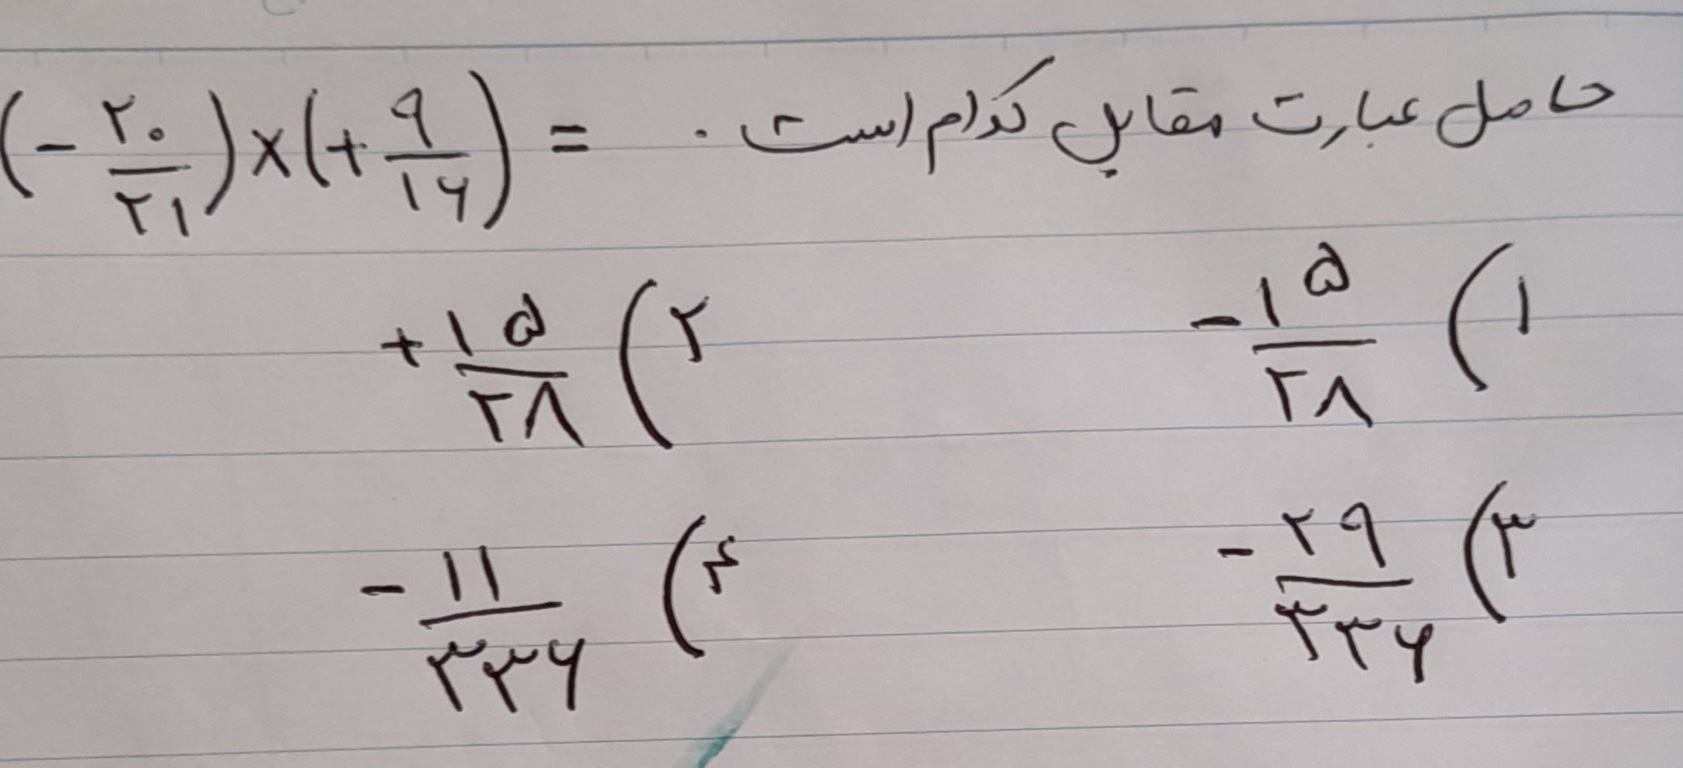 حاصل عبارت مقابل کدام است. (-۲۰/۲۱)×(+۹/۱۶)=
۱) -۱۵/۲۸ ۲) +۱۵/۲۸
۳) -۲۹/۳۳۶ ۴) -۱۱/۳۳۶